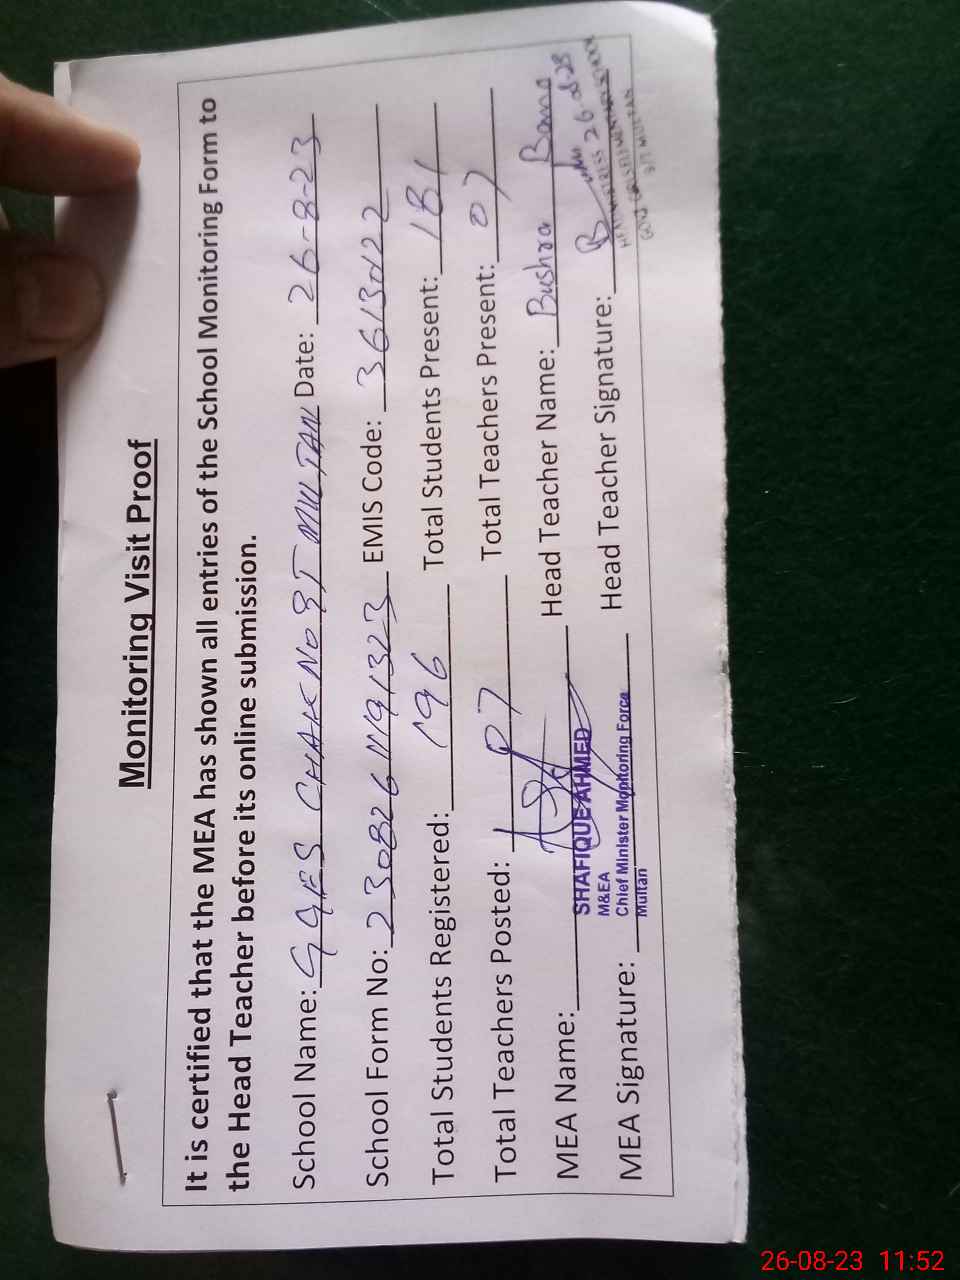 Monitoring Visit Proof
It is certified that the MEA has shown all entries of the School Monitoring Form to
the Head Teacher before its online submission.
School Name: GGES CHAK No 8T MULTAN Date: 26-8-23
School Form No: EMIS Code:
Total Students Registered: 196 Total Students Present: 181
Total Teachers Posted: 07 Total Teachers Present: 07
MEA Name: Head Teacher Name: Bushra Bano
SHAFIQUE AHMED
M&EA
Chief Minister Monitoring Force
Multan
MEA Signature: Head Teacher Signature:
26-08-23 11:52